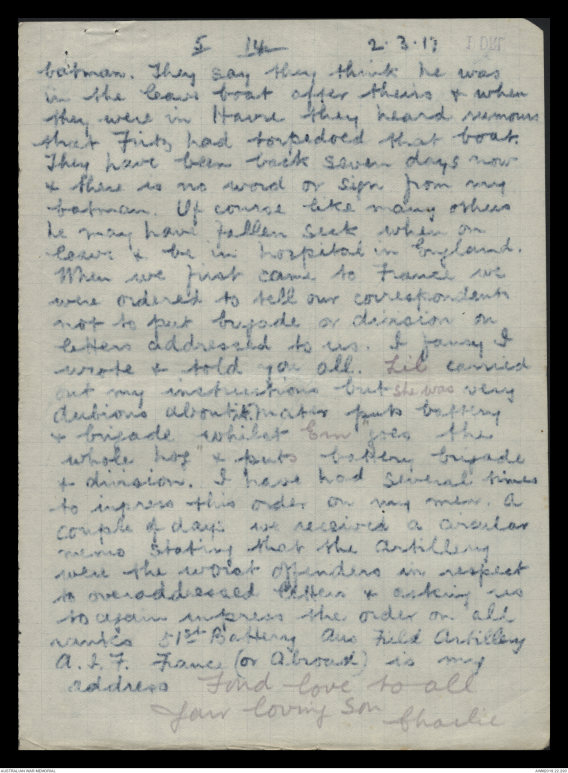 5 14 2.3.17
batman. They say they think he was
in the leave boat after theirs & when
they were in Havre they heard rumours
that Fritz had torpedoed that boat.
They have been back seven days now
& there is no word or sign from my
batman. Of course like many others
he may have fallen sick when on
leave & be in hospital in England.
When we first came to France we
were ordered to tell our correspondents
not to put brigade or division on
letters addressed to us. I fancy I
wrote & told you all. Lil carried
out my instructions but she was very
dubious about it, Mater puts battery
& brigade whilst Ern "goes the
whole hog" & puts battery brigade
& division. I have had several times
to inpress this order on my men. A
couple of days we received a circular
memo stating that the Artillery
were the worst offenders in respect
to overaddressed letters & asking us
to again impress the order on all
ranks 51st Battery Aus Field Artillery
A.I.F. France (or Abroad) is my
address Fond love to all
Your loving Son
Charlie
AUSTRALIAN WAR MEMORIAL